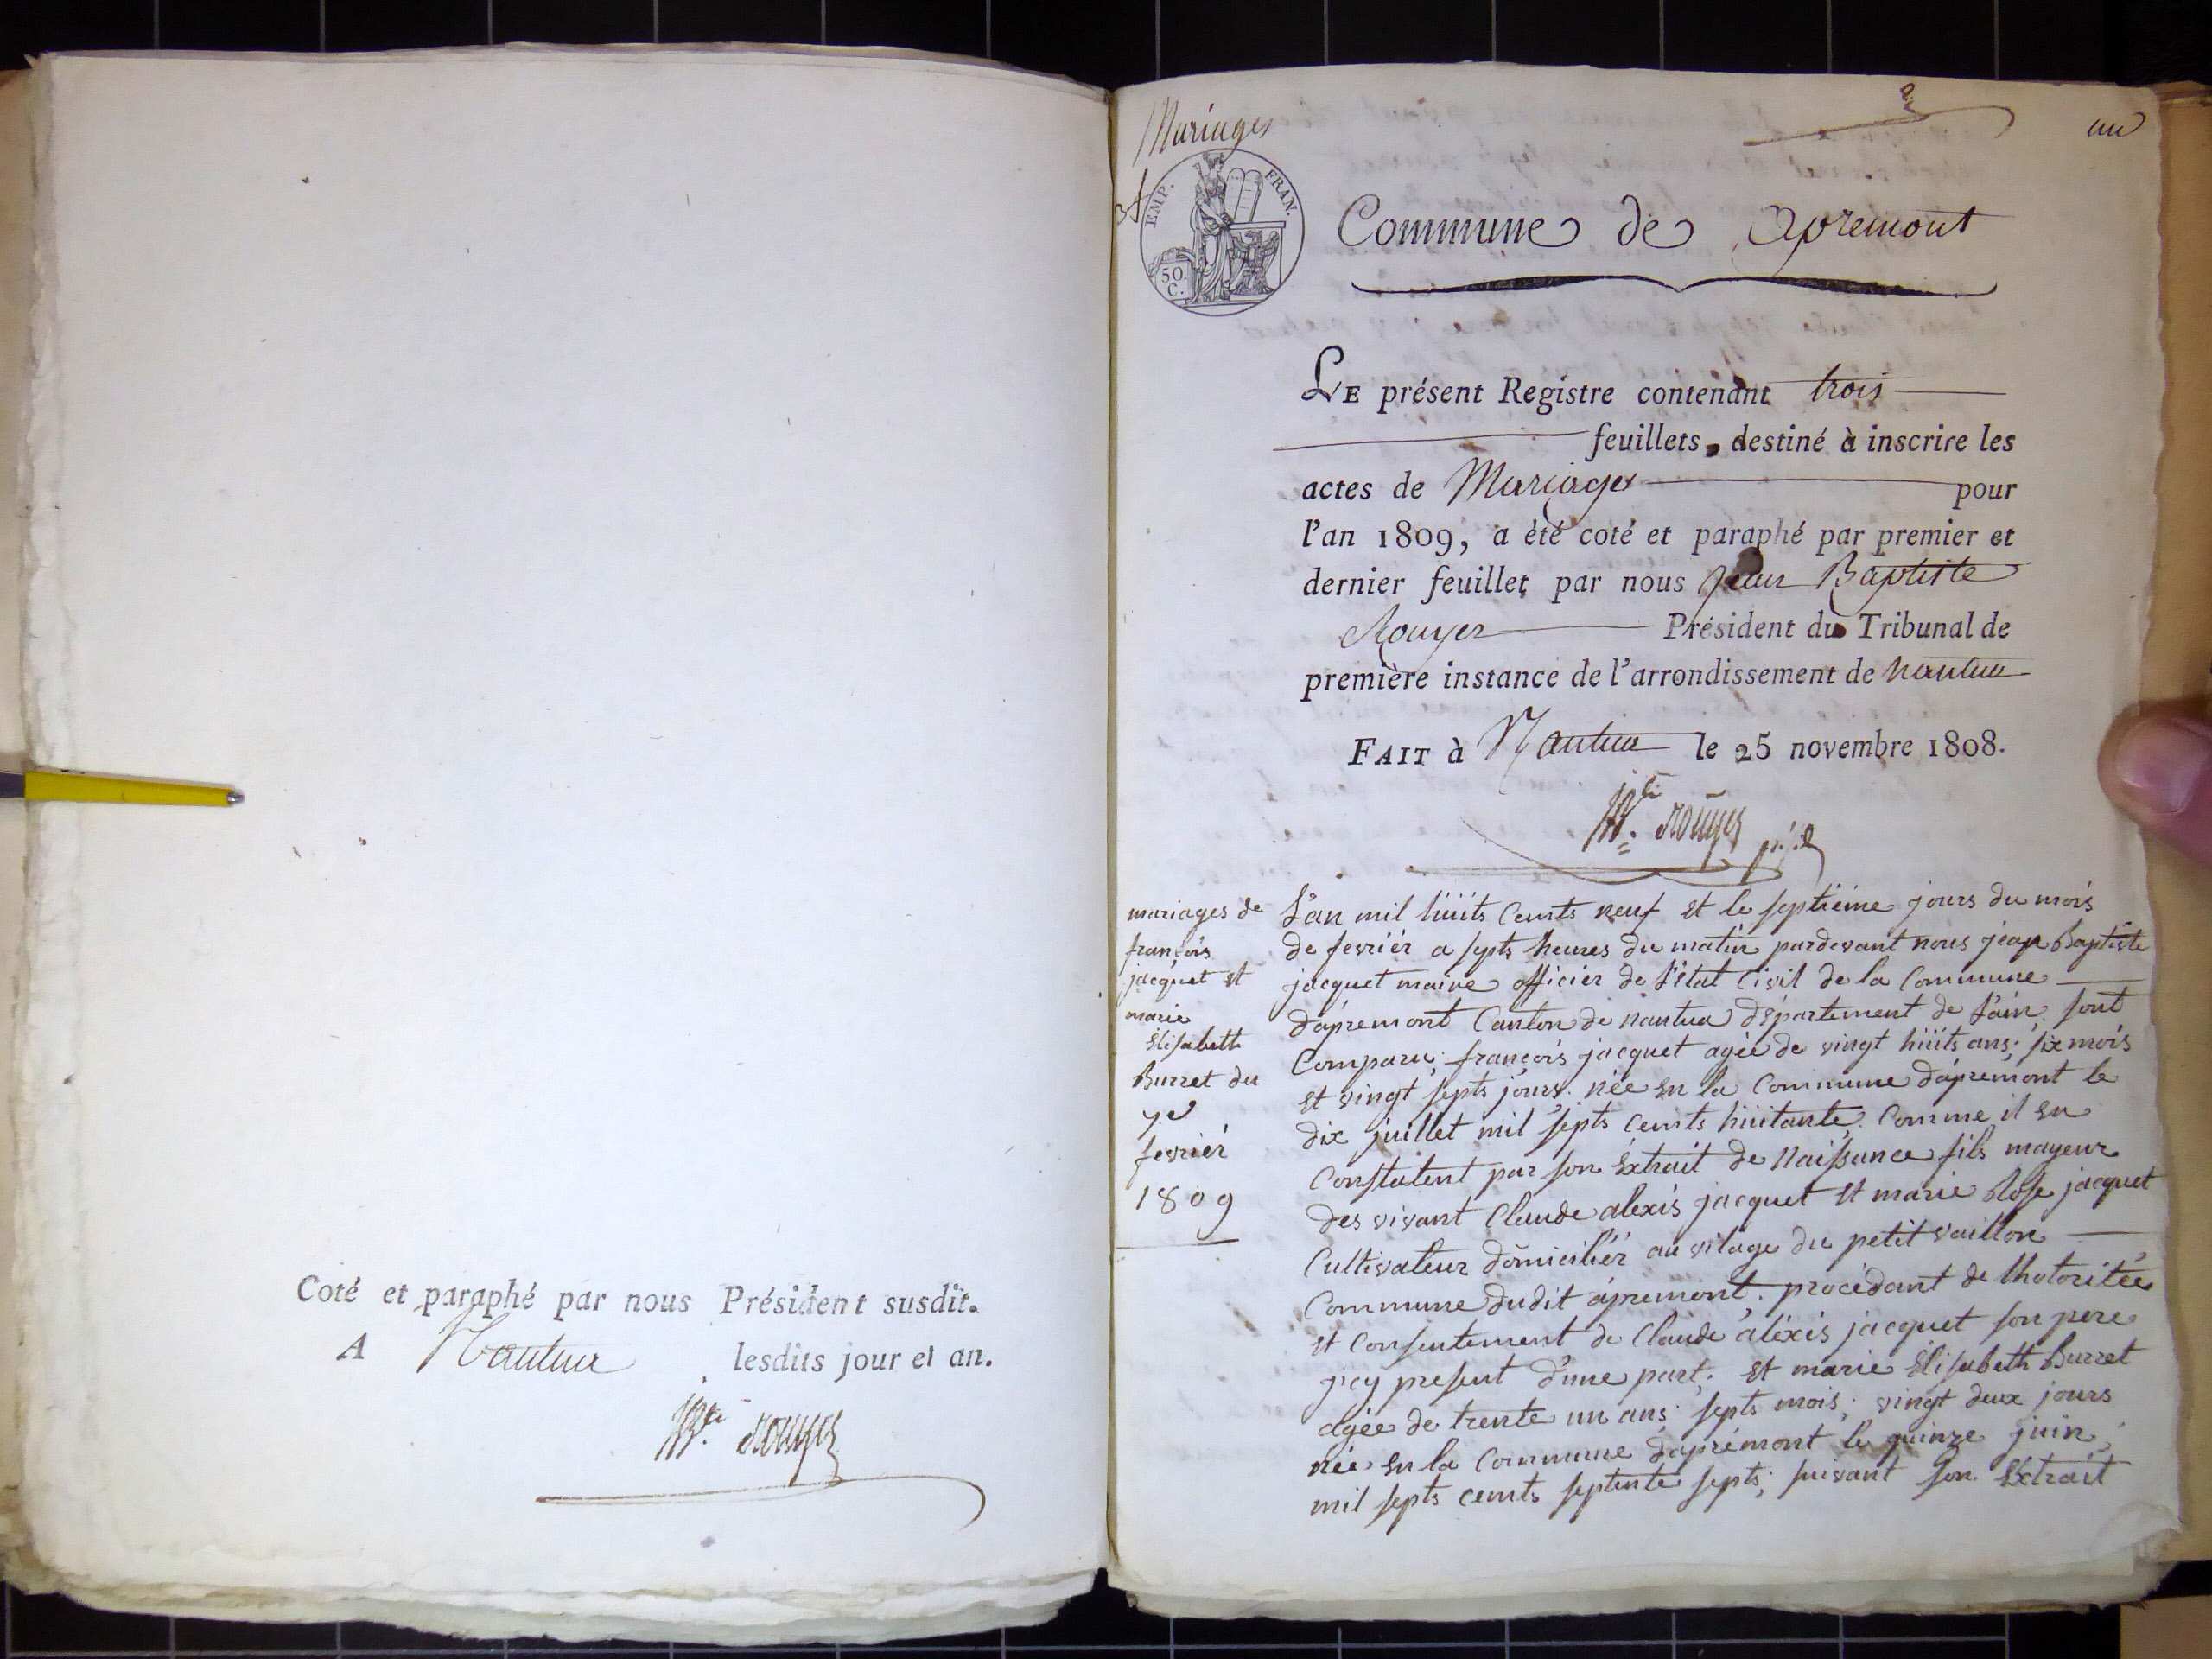 Coté et paraphé par nous Président susdit.
A Nantua lesdits jour et an.
Bte. rouyer
Mariages
un
EMP. FRAN.
50 C.
Commune de apremont
LE présent Registre contenant trois
feuillets, destiné à inscrire les
actes de Mariages pour
l'an 1809, a été coté et paraphé par premier et
dernier feuillet par nous Jean Baptiste
Rouyer Président du Tribunal de
première instance de l'arrondissement de nantua
FAIT à Nantua le 25 novembre 1808.
Bte. rouyer
mariages de
françois
jacquet et
marie
Elisabeth
Burret du
7e
fevriér
1809
L'an mil hüits Cents neuf et le septiéme jours du mois
de fevriér a septs heures du matin pardevant nous jean Baptiste
jacquet maire officier de l'état Civil de la Commune
d'apremont Canton de nantua département de l'ain sont
Comparu; françois jacquet agée de vingt hüits ans; six mois
et vingt septs jours. née en la Commune d'apremont le
dix juillet mil septs cents hüitante. Comme il en
Constatent par son Extrait de Naissance fils mayeur
des vivant Claude alexis jacquet et marie Rose jacquet
Cultivateur domiciliér au vilage du petit vaillon
Commune dudit apremont. procédant de lhotoritée
et Consentement de Claude aléxis jacquet son pere
j'cy present d'une part. et marie Elisabeth Burret
agée de trente un ans; septs mois; vingt deux jours
née en la Commune d'aprémont le quinze juin
mil septs cents septente septs; suivant son Extrait